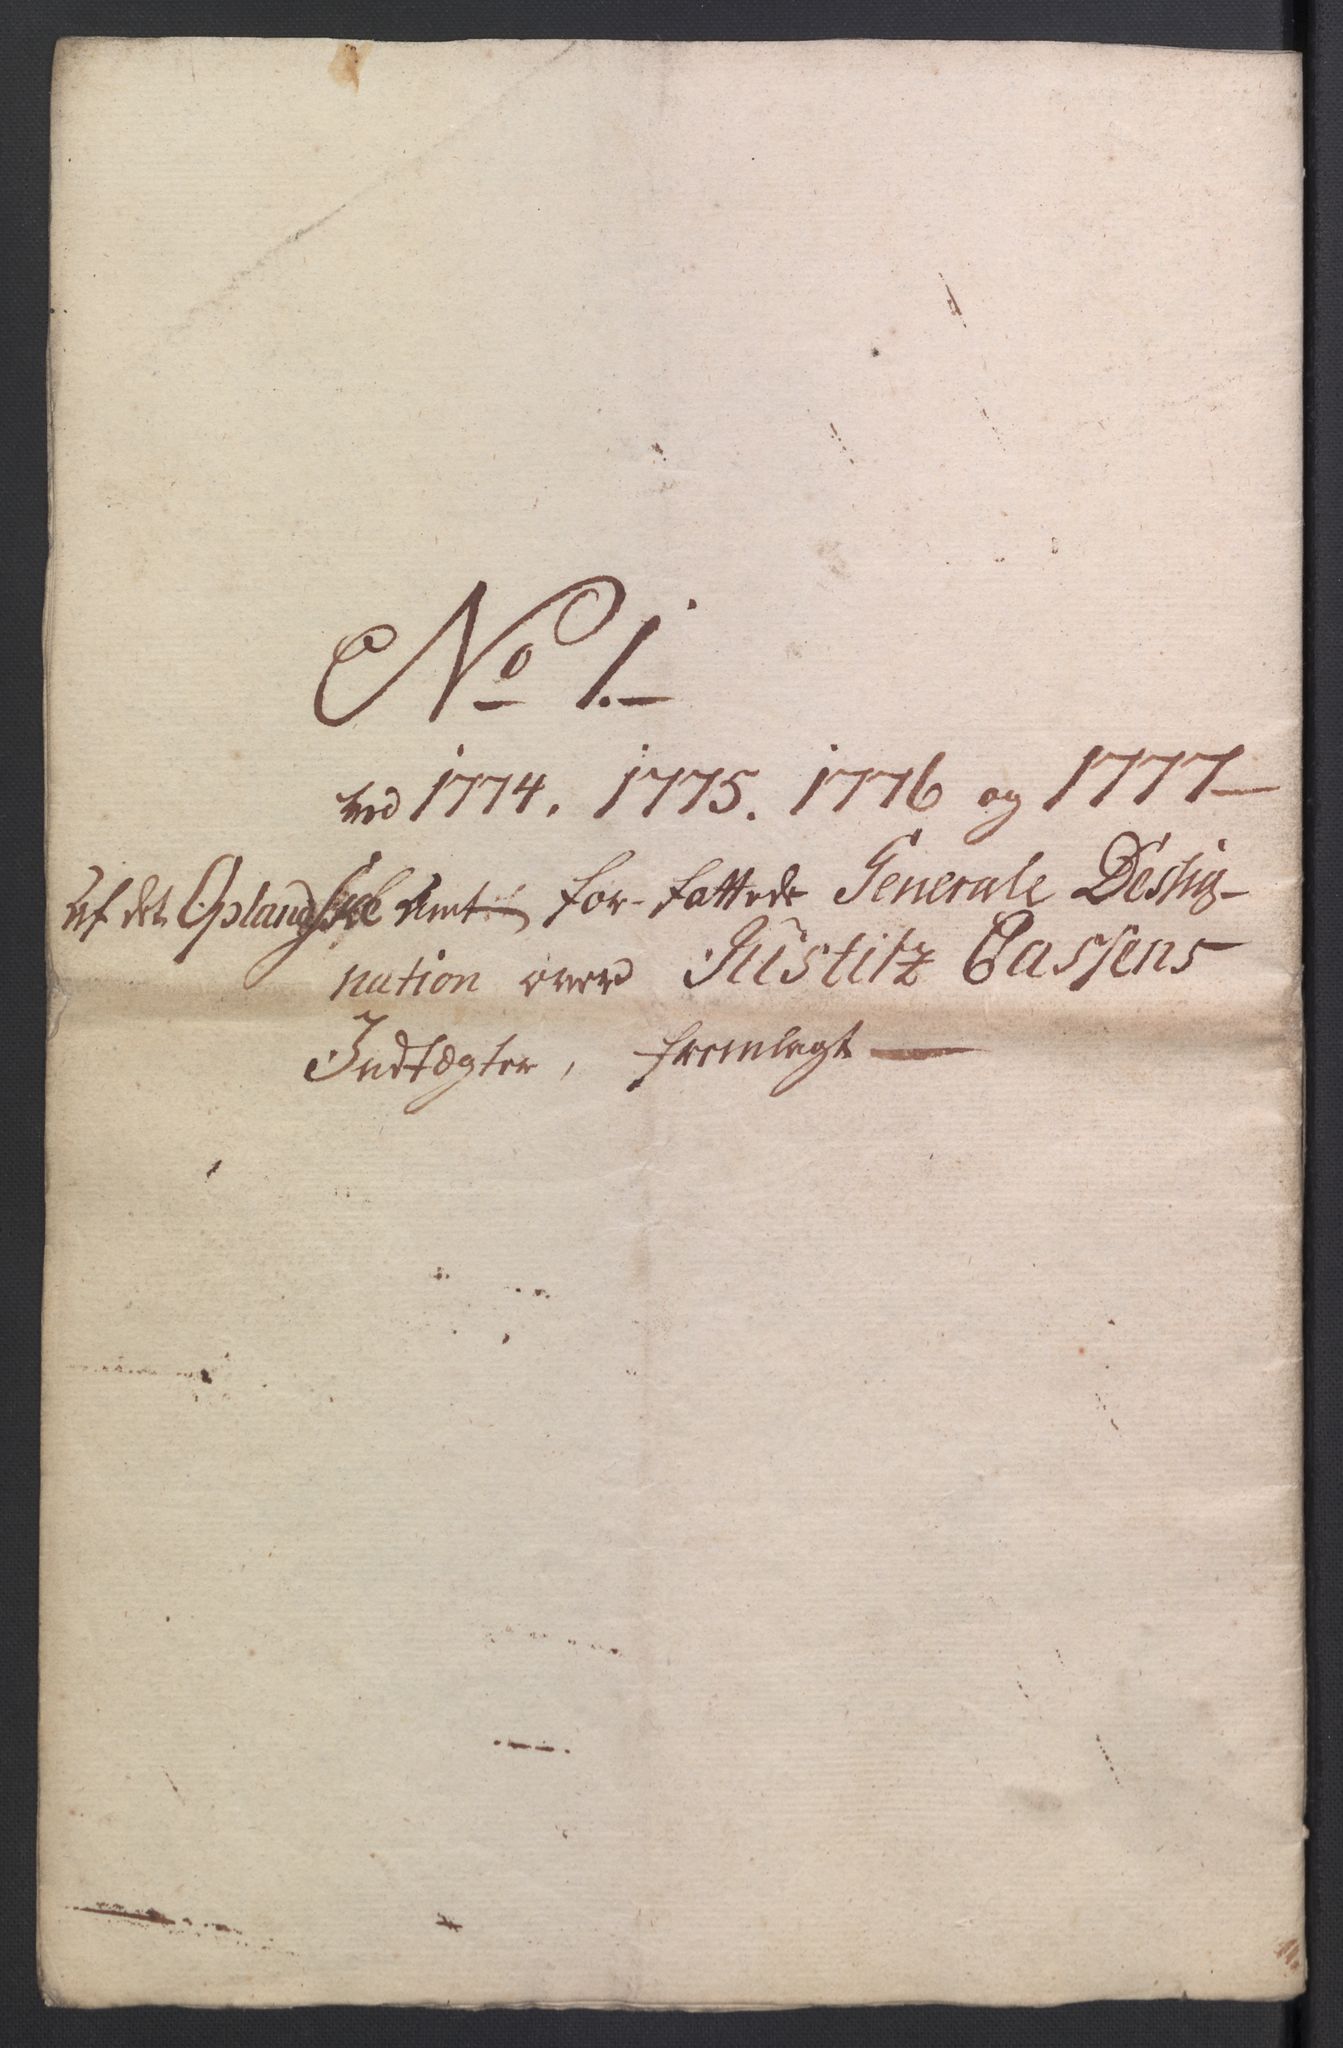 No 1.
ved 1774. 1775. 1776 og 1777
af det Oplandske Amt for-fattede Generale Desig-
nation over Justitz Cassens
Indtægter, fremlagt